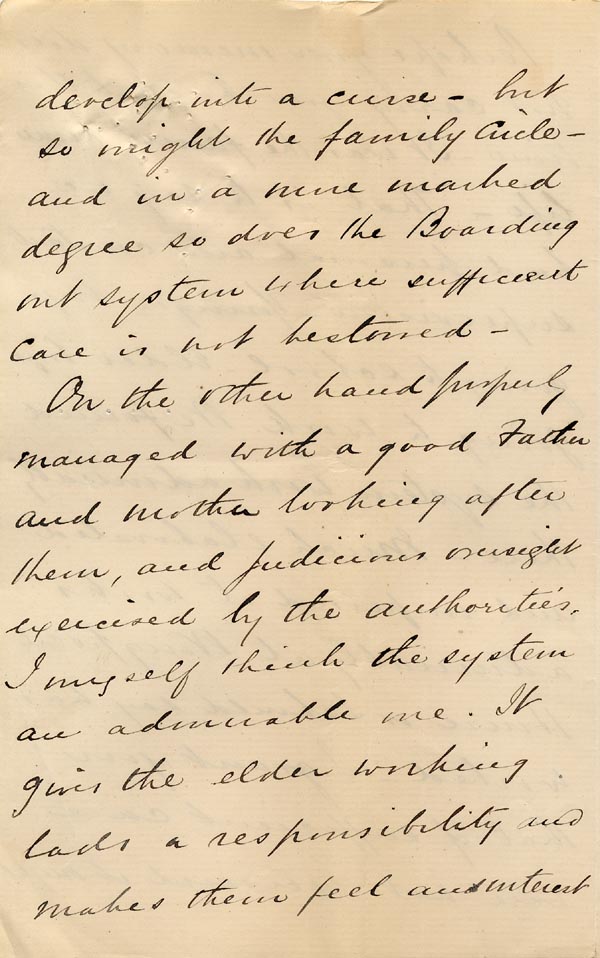 develop into a curse - but
so might the family Circle -
and in a more marked
degree so does the Boarding
out system where sufficient
care is not bestowed -
On the other hand properly
managed with a good Father
and mother looking after
them, and judicious oversight
exercised by the authorities,
I myself think the system
an admirable one. It
gives the elder working
lads a responsibility and
makes them feel an interest